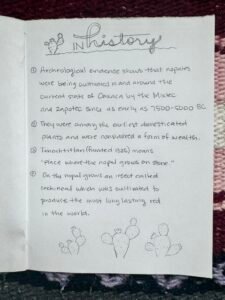 IN history
① Archeological evidence shows that nopales
were being cultivated in and around the
current state of Oaxaca by the Mixtec
and Zapotec since as early as 7500-5000 BC
② They were among the earliest domesticated
plants and were considered a form of wealth.
③ Tenochtitlan (founded 1325) means
"Place where the nopal grows on stone."
④ On the nopal grows an insect called
cochineal which was cultivated to
produce the most long lasting red
in the world.